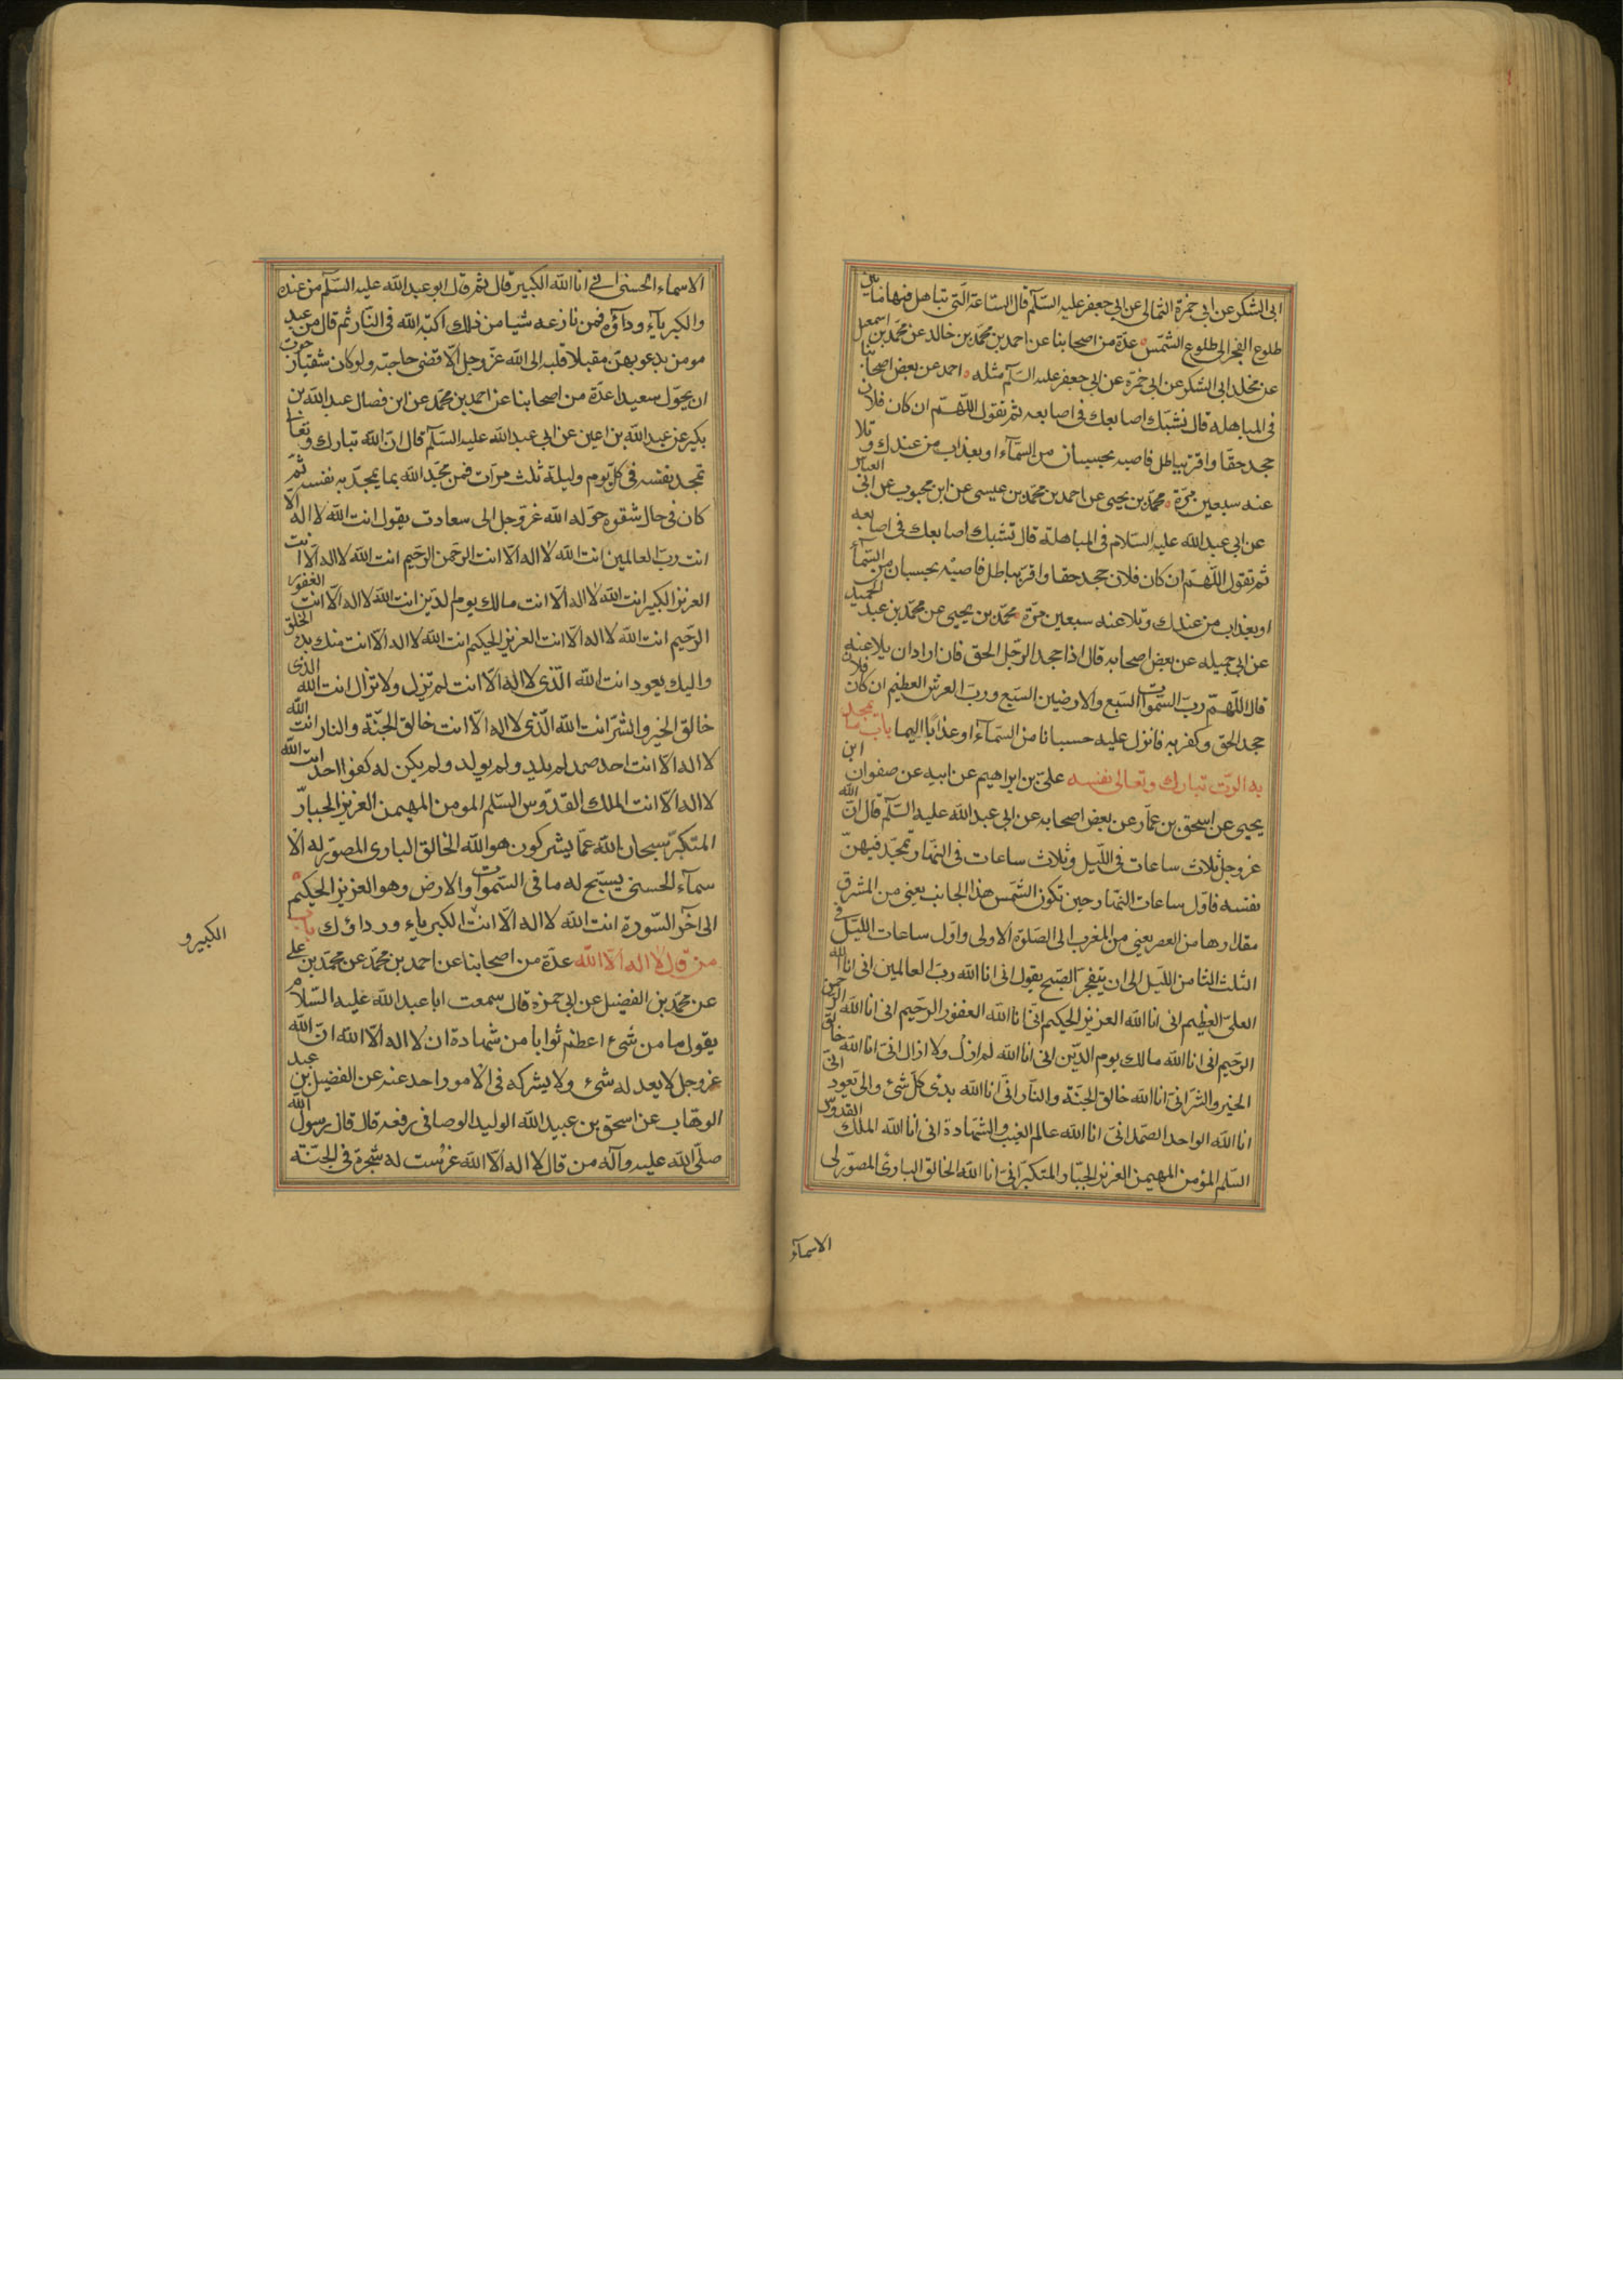 ابى الشكر عن ابى حمزة الثمالى عن ابى جعفر عليه السلم قال الساعة التى تباهل فيها ما بين
طلوع الفجر الى طلوع الشمس عدة من اصحابنا عن احمد بن محمد بن خالد عن محمد بن اسمعيل
عن مخلد ابى الشكر عن ابى حمزة عن ابى جعفر عليه السلم مثله احمد عن بعض اصحابنا
فى المباهلة قال تشبك اصابعك فى اصابعه ثم تقول اللهم ان كان فلان
جحد حقا واقر بباطل فاصبه بحسبان من السماء او بعذاب من عندك وتلا
عنه سبعين مرة محمد بن يحيى عن احمد بن محمد بن عيسى عن ابن محبوب عن ابى العباس
عن ابى عبد الله عليه السلام فى المباهلة قال تشبك اصابعك فى اصابعه
ثم تقول اللهم ان كان فلان جحد حقا واقر بباطل فاصبه بحسبان من السماء
او بعذاب من عندك وتلاعنه سبعين مرة محمد بن يحيى عن محمد بن عبد الحميد
عن ابى جميله عن بعض اصحابه قال اذا جحد الرجل الحق فان اراد ان يلاعنه
قال اللهم رب السموات السبع والارضين السبع ورب العرش العظيم ان كان فلان
جحد الحق وكفر به فانزل عليه حسبانا من السماء او عذابا اليما باب ما تمجد
به الرب تبارك وتعالى نفسه على بن ابراهيم عن ابيه عن صفوان ابن
يحيى عن اسحق بن عمار عن بعض اصحابه عن ابى عبد الله عليه السلم قال ان الله
عز وجل ثلاث ساعات فى الليل وثلاث ساعات فى النهار تمجد فيهن
نفسه فاول ساعات النهار حين تكون الشمس هذا الجانب يعنى من المشرق
مقدارها من العصر يعنى من المغرب الى الصلوة الاولى واول ساعات الليل فى
الثلث الثا من الليل الى ان يتفجر الصبح يقول انى انا الله رب العالمين انى انا الله
العلى العظيم انى انا الله العزيز الحكيم انى انا الله الغفور الرحيم انى انا الله الرحمن
الرحيم انى انا الله مالك يوم الدين انى انا الله لم ازل ولا ازال انى انا الله خالق
الخير والشر انى انا الله خالق الجنة والنار انى انا الله بدئ كل شئ والى يعود انى
انا الله الواحد الصمد انى انا الله عالم الغيب والشهادة انى انا الله الملك القدوس
السلم المؤمن المهيمن العزيز الجبار المتكبر انى انا الله الخالق البارئ المصور لى
الاسماء
الاسماء الحسنى انى انا الله الكبير قال ثم قال ابو عبد الله عليه السلم من عنده
والكبرياء رداؤه فمن نازعه شيا من ذلك اكبه الله فى النار ثم قال من عبد
مومن يدعو بهن مقبلا قلبه الى الله عز وجل الا قضى حاجته ولو كان شقيا رجوت
ان يحول سعيدا عدة من اصحابنا عن احمد بن محمد عن ابن فضال عبد الله بن
بكير عن عبد الله بن اعين عن ابى عبد الله عليه السلم قال ان الله تبارك وتعا
تمجد نفسه فى كل يوم وليلة ثلث مرات فمن مجد الله بما يمجد به نفسه ثم
كان فى حال شقوه حوله الله عز وجل الى سعادت يقول انت الله لا اله الا
انت رب العالمين انت الله لا اله الا انت الرحمن الرحيم انت الله لا اله الا انت
العزيز الكبير انت الله لا اله الا انت مالك يوم الدين انت الله لا اله الا انت الغفور
الرحيم انت الله لا اله الا انت العزيز الحكيم انت الله لا اله الا انت منك بدء الخلق
واليك يعود انت الله الذى لا اله الا انت لم تزل ولا تزال انت الله الذى
خالق الخير والشر انت الله الذى لا اله الا انت خالق الجنة والنار انت الله
لا اله الا انت احد صمد لم يلد ولم يولد ولم يكن له كفوا احد انت الله
لا اله الا انت الملك القدوس السلم المومن المهيمن العزيز الجبار
المتكبر سبحان الله عما يشركون هو الله الخالق البارى المصور له الا
سماء الحسنى يسبح له ما فى السموات والارض وهو العزيز الحكيم
الى اخر السورة انت الله لا اله الا انت الكبرياء ورداؤك باب
من قال لا اله الا الله عدة من اصحابنا عن احمد بن محمد عن محمد بن على
عن محمد بن الفضيل عن ابى حمزة قال سمعت ابا عبد الله عليه السلام
يقول ما من شئ اعظم ثوابا من شهادة ان لا اله الا الله ان الله
عز وجل لا يعد له شئ ولا يشركه فى الامور احد عنه عن الفضيل بن عبد
الوهاب عن اسحق بن عبيد الله الوليد الوصافى رفعه قال قال رسول الله
صلى الله عليه وآله من قال لا اله الا الله غرست له شجرة فى الجنة
الكبير و